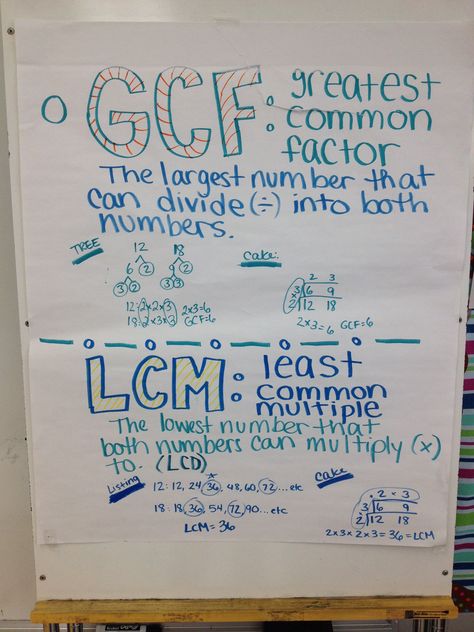 GCF: greatest
common
factor
The largest number that
can divide (÷) into both
numbers.
TREE
12 18
6 2 9 2
3 2 3 3
12: 2x2x3
18: 2x3x3
2x3=6
GCF=6
Cake:
2 3
3 6 9
2 12 18
2x3=6 GCF=6
LCM: least
common
multiple
The lowest number that
both numbers can multiply (x)
to. (LCD)
Listing
12: 12, 24, 36, 48, 60, 72...etc
18: 18, 36, 54, 72, 90...etc
LCM=36
Cake
2 x 3
3 6 9
2 12 18
2x3x2x3=36=LCM